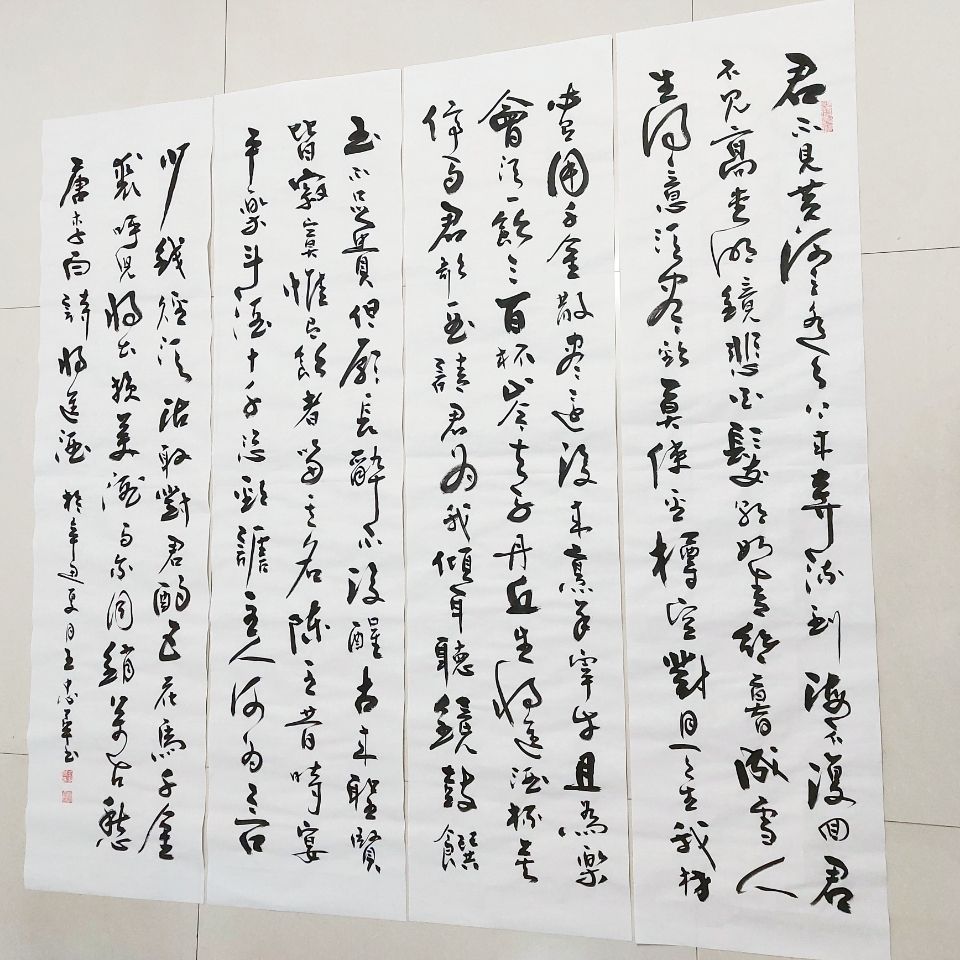 君不見黄河之水天上来奔流到海不復回君
不見高堂明鏡悲白髮朝如青絲暮成雪人
生得意須盡歡莫使金樽空對月天生我材
必有用千金散盡還復来烹羊宰牛且為樂
會須一飲三百杯岑夫子丹丘生將進酒杯莫
停與君歌一曲請君為我傾耳聽鐘鼓饌
玉不足貴但願長醉不復醒古来聖賢
皆寂寞惟有飲者留其名陳王昔時宴
平樂斗酒十千恣歡謔主人何為言
少錢徑須沽取對君酌五花馬千金
裘呼兒將出換美酒與爾同銷萬古愁
唐李白詩將進酒 於辛丑夏月王忠華书